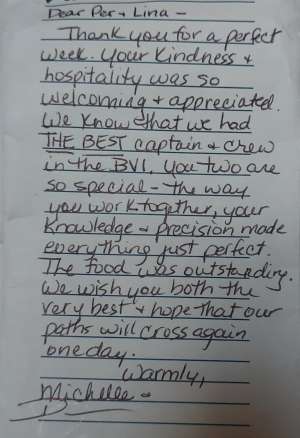 Dear Per & Lina -
Thank you for a perfect
week. Your kindness &
hospitality was so
welcoming & appreciated.
We know that we had
THE BEST captain & crew
in the BVI. You two are
so special - the way
you work together, your
knowledge & precision made
everything just perfect.
The food was outstanding.
We wish you both the
very best & hope that our
paths will cross again
one day.
Warmly,
Michelle